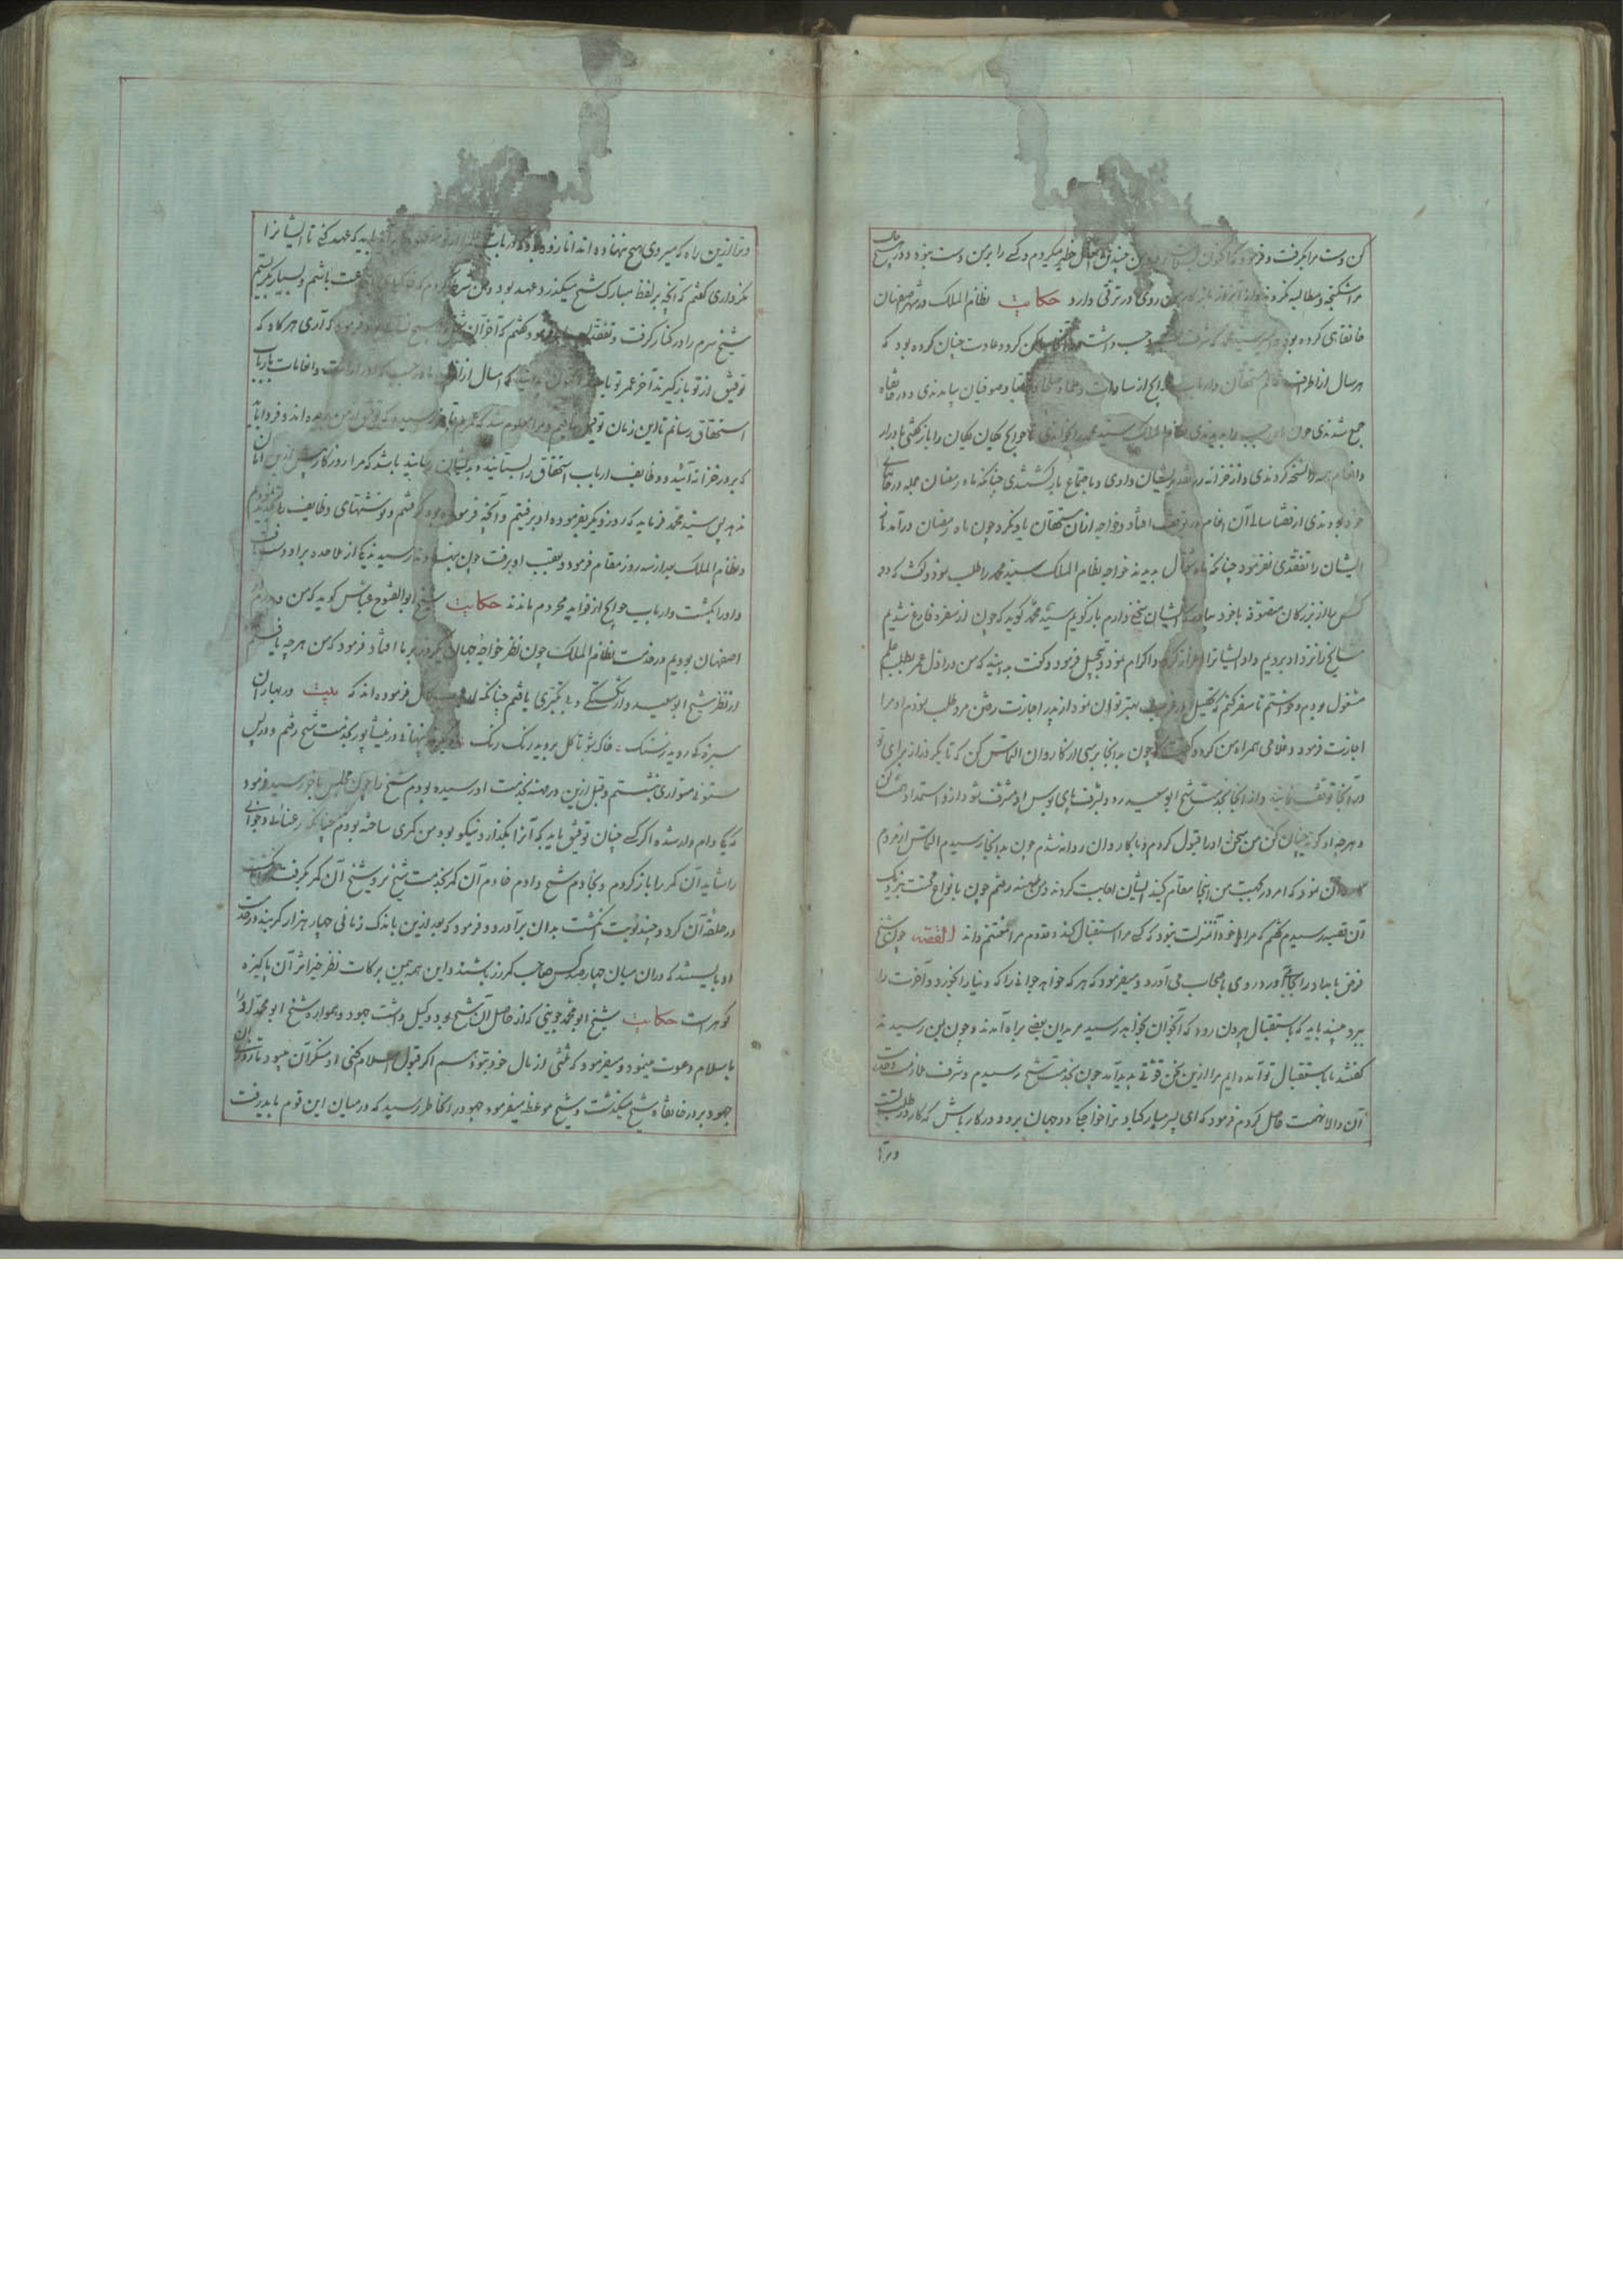 کن دست مرا بگرفت و فرمود که اکنون چندین اعمال خطیر میکردم و کسی را بر من دست نبود و در هیچ حال
مرا شکنجه و مطالبه نکردند و از آنروز باز کار من روی در ترقی دارد حکایت نظام الملک در شهر اصفهان
خانقاهی کرده بود و امیر سید محمد که شرف نسب و حسب داشت خادم آنجا کرد و عادت چنان کرده بود که
هر سال از اطراف عالم مستحقان و ارباب حوایج از سادات و علما و صلحا و صوفیان بیامدندی و در خانقاه
جمع شدندی چون ماه رجب را بدیدندی نظام الملک سید محمد را بخواندی تا حوایج یکان یکان را باز گفتی تا ادرار
و انعام همه را نسخه کردندی و از خزانه نقد بدیشان دادی و با اجتماع بازگشتندی چنانکه ماه رمضان جمله در خانهای
خود بودندی از قضا سالی آن انعام در توقف افتاد و خواجه از آن مستحقان یاد نکرد چون ماه رمضان درآمد نیز
ایشان را تفقدی نفرمود چنانکه ماه شوال بدیدند خواجه نظام الملک سید محمد را طلب نمود و گفت که ده
کس را از بزرگان متصوفه با خود بیاور که با ایشان سخنی دارم باز گویم سید محمد گوید که چون از سفره فارغ شدیم
مشایخ را نزد او بردیم و او ایشانرا اعزاز کرد و اکرام نمود و تبجیل فرمود و گفت بدانید که من در اول عمر بطلب علم
مشغول بودم و خواستم تا سفر کنم که تحصیل در غربت بهتر توان نمود از پدر اجازت رفتن مرو طلب نمودم او مرا
اجازت فرمود و غلامی همراه من کرد و گفت که چون بدانجا برسی از کاروان التماس کن که تا یکروز از برای تو
در آنجا توقف نمایند و از آنجا بخدمت شیخ ابو سعید رو و بشرف پای بوس او مشرف شو و ازو استمداد همت کن
و هر چه او گوید چنان کن من سخن او را قبول کردم و با کاروان روانه شدم چون بدانجا رسیدم التماس از مردم
کاروان نمودم که امروز بجهت من اینجا مقام کنید ایشان اجابت کردند و من بمیهنه رفتم چون با نواع محنت نزدیک
آن قصبه رسیدم گفتم که مرا با خود آن منزلت نبود که کسی مرا استقبال کند و مقدوم مرا مغتنم داند القصه چون شیخ
فرض بامداد را بجای آورد روی باصحاب می آورد و میفرمود که هر که خواهد جوانی را که دنیا را بخورد و آخرت را
ببرد ببیند باید که باستقبال بیرون رود که آنجوان بخواهد رسید مریدان بعضی براه آمدند و چون بمن رسیدند
گفتند ما باستقبال تو آمده ایم مرا ازین سخن قوتی پدید آمد چون بخدمت شیخ رسیدم و شرف ملازمت و خدمت
آن والا همت حاصل کردم فرمود که ای پسر مبارکباد ترا خواجگی دو جهان برو و در کار باش که کار در طلب تست
و ترا
و ترا ازین راه که میروی هیچ ننهاده اند اما زود بود که ارباب باید که عهد کنی تا ایشانرا
نگهداری گفتم که آنچه بر لفظ مبارک شیخ میگذرد عهد بود و من شرط کردم که باشم و بسیار بگریستم
شیخ سرم را در کنار گرفت و تفقد بسیار فرمود گفتم که آخر آن فرمود که آری هرگاه که
توفیق از تو باز گیرند آخر عمر تو باشد اکنون بدانید که امسال از اول ماه رجب و انعامات بارباب
استحقاق رسانم تا این زمان توفیق نیافتم و مرا معلوم شد که عمرم بآخر رسیده که توفیق از من بریده اند و فردا باید
که بر در خزانه آئید و وظایف ارباب استحقاق را بستانید و بدیشان رسانید باشد که مرا روزگار بیش ازین امان
ندهد پس سید محمد فرماید که روز دیگر بفرموده او برفتیم و آنچه فرموده بود گرفتم و نوشتهای وظایف را نمودیم
و نظام الملک بعد از سه روز مقام فرمود و بعقب او برفت چون بنهاوند رسیدند یکی از ملاحده برو دست یافت
و او را بکشت و ارباب حوایج از فواید محروم ماندند حکایت شیخ ابو الفتوح عباس گوید که من و پدرم در
اصفهان بودیم در خدمت نظام الملک چون نظر خواجه جهان یکروز بر ما افتاد فرمود که من هر چه یافتم
از نظر شیخ ابو سعید و از شکستگی و بی کبری یافتم چنانکه فرموده اند که بیت در بهاران
سبزه کی روید ز سنگ ؛ خاک شو تا گل بروید رنگ رنگ پنهانی در نیشابور بخدمت شیخ رفتم و در پس
ستونی متواری بنشستم و قبل ازین در میهنه بخدمت او رسیده بودم شیخ را چون مجلس بآخر رسید فرمود
که یکی وام دار شده اگر کسی چنان توفیق یابد که آنرا بگذارد نیکو بود من کمری ساخته بودم چنانکه رعنائی و جوانی
را شاید آن کمر را باز کردم و بخادم شیخ دادم خادم آن کمر بخدمت شیخ برد شیخ آن کمر بگرفت انگشت
در حلقه آن کرد و چند نوبت انگشت بدان برآورد و فرمود که بعد ازین باندک زمانی چهار هزار کمر بند در خدمت
او بایستند که در آن میان چهارصد کس صاحب کمر زر باشند و این همه بیمن برکات نظر خیر اثر آن پاکیزه
گوهر است حکایت شیخ ابو محمد جوینی که از خاصان آن شیخ بود وکیل داشت جهود و همواره شیخ ابو محمد او را
باسلام دعوت مینمود و میفرمود که ثلثی از مال خود بتو دهم اگر قبول اسلام کنی او منکر آن میبود تا روزی آن
جهود بر در خانقاه شیخ میگذشت و شیخ موعظه میفرمود جهود را بخاطر رسید که در میان این قوم باید رفت